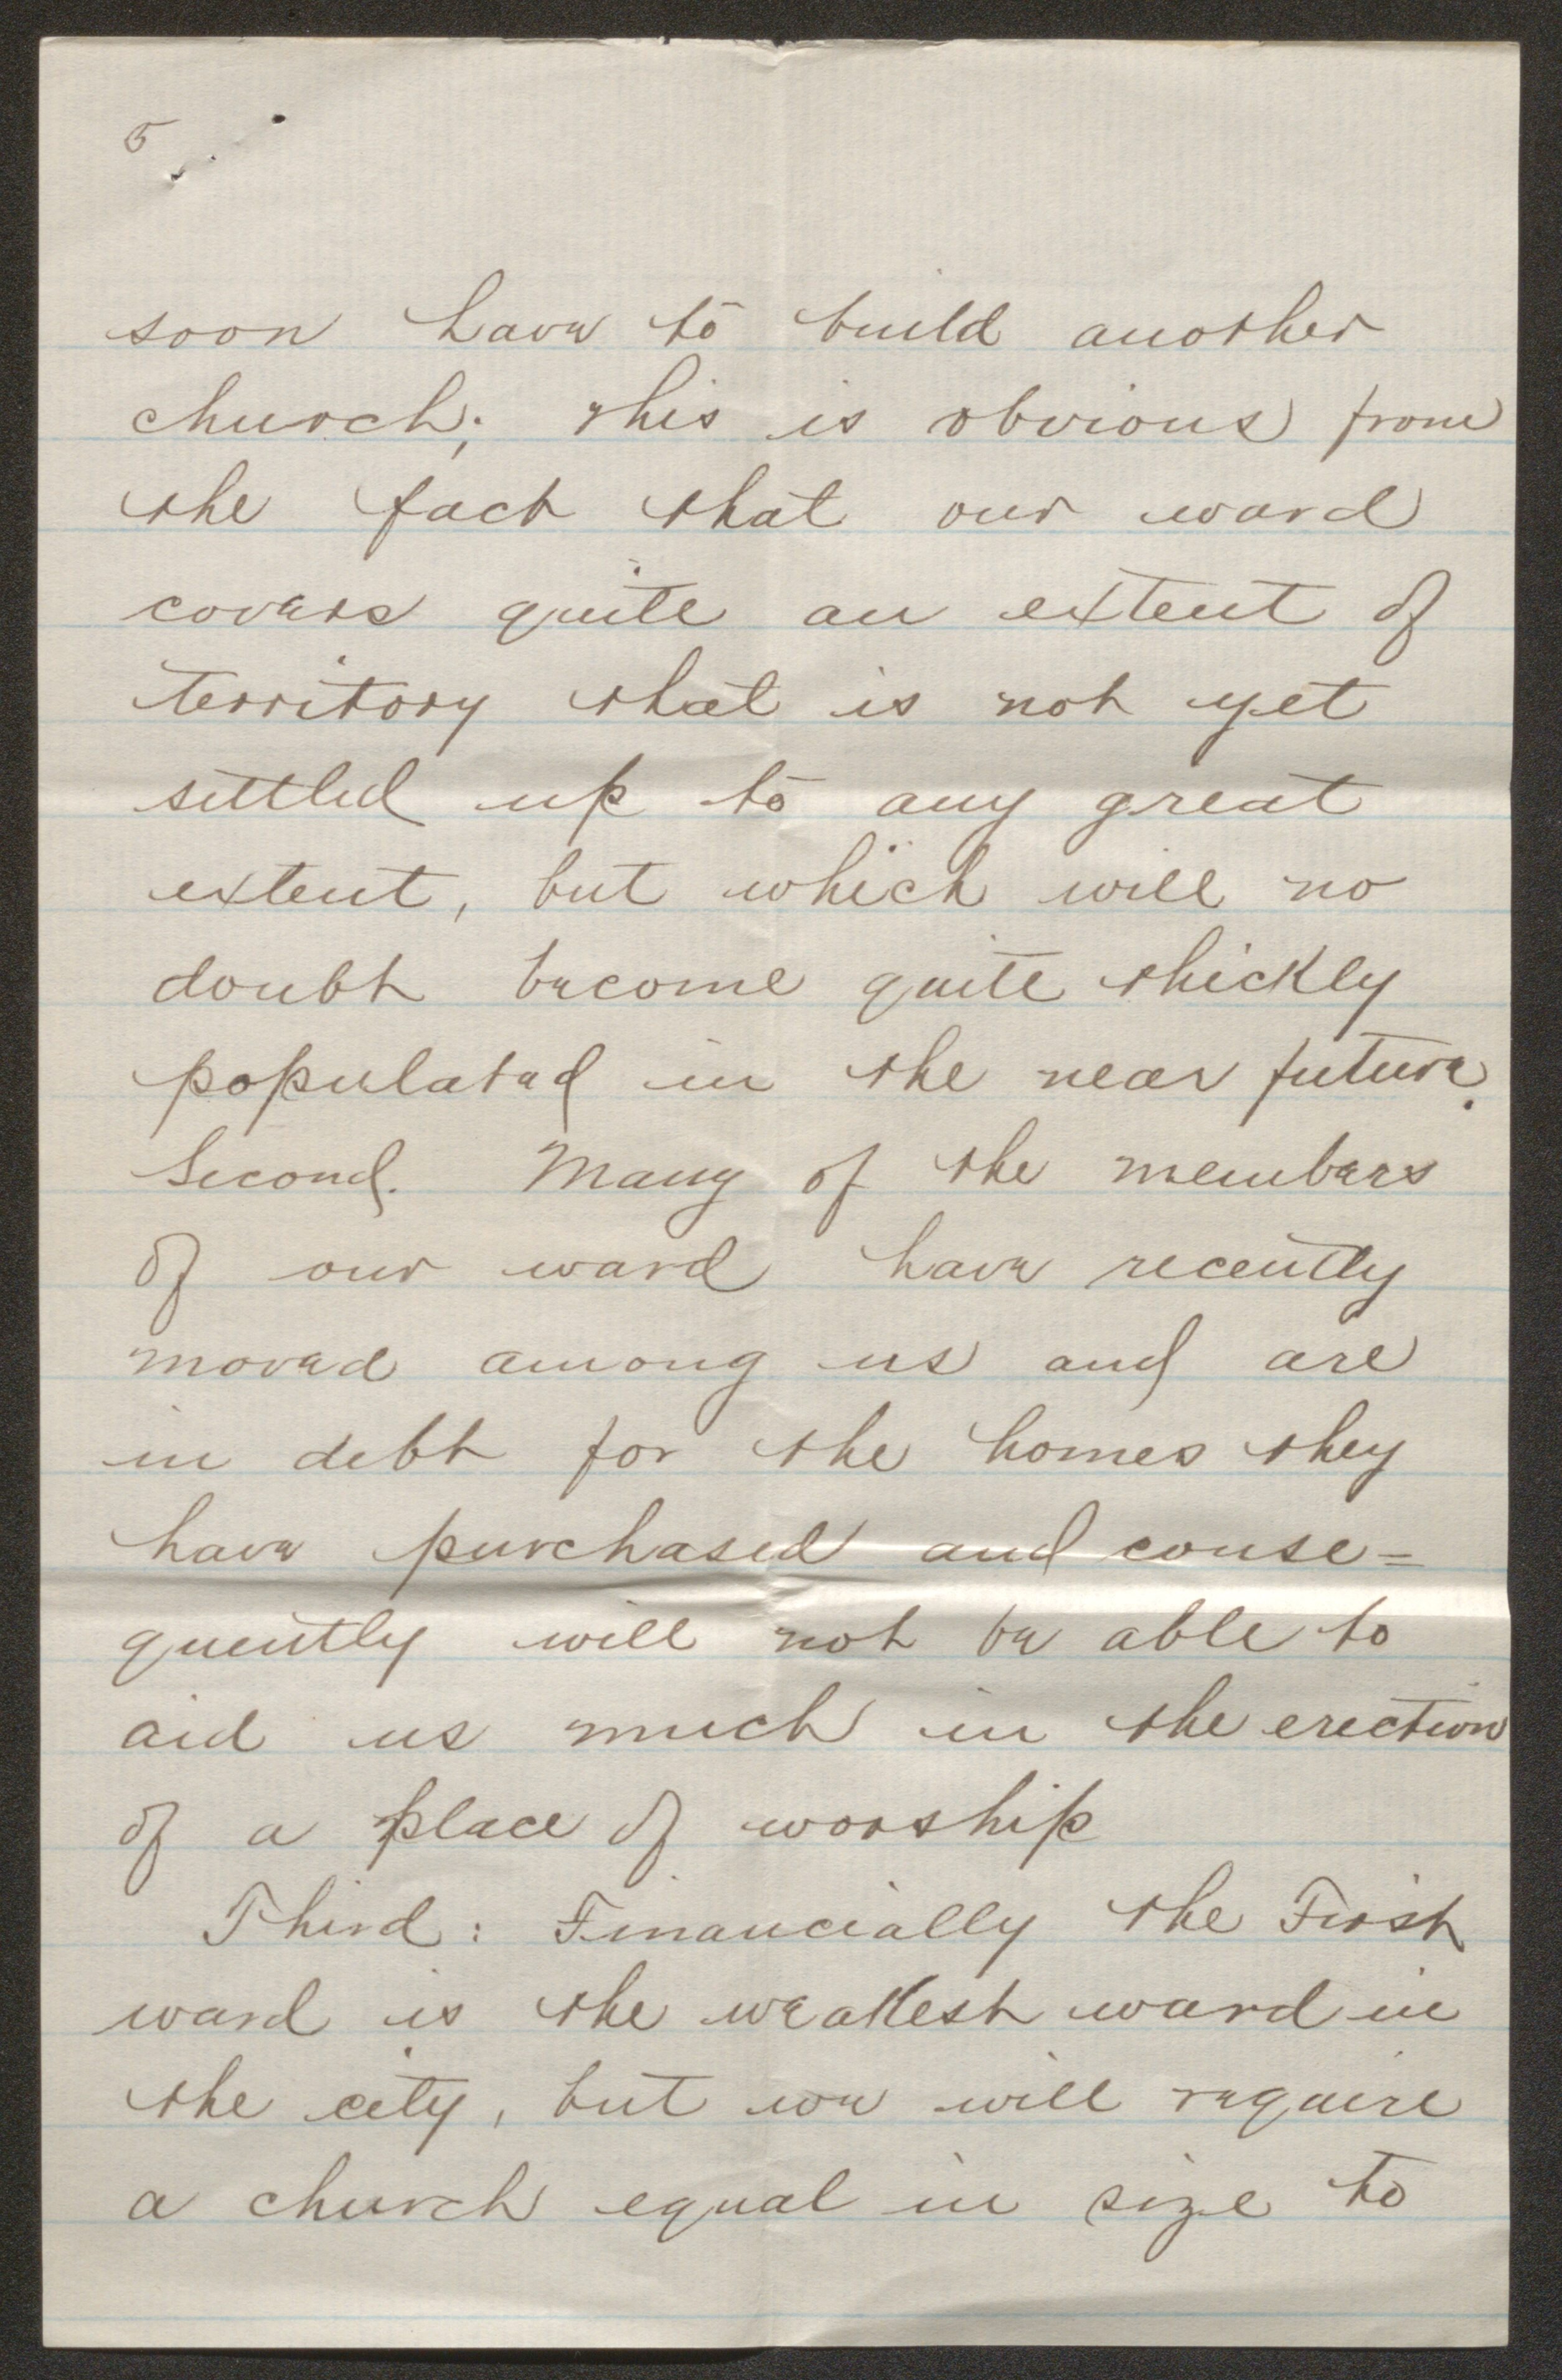 5
soon have to build another
church; this is obvious from
the fact that our ward
covers quite an extent of
territory that is not yet
settled up to any great
extent, but which will no
doubt become quite thickly
populated in the near future.
Second. Many of the members
of our ward have recently
moved among us and are
in debt for the homes they
have purchased and conse=
quently will not be able to
aid us much in the erection
of a place of worship
Third: Financially the First
ward is the weakest ward in
the city, but we will require
a church equal in size to